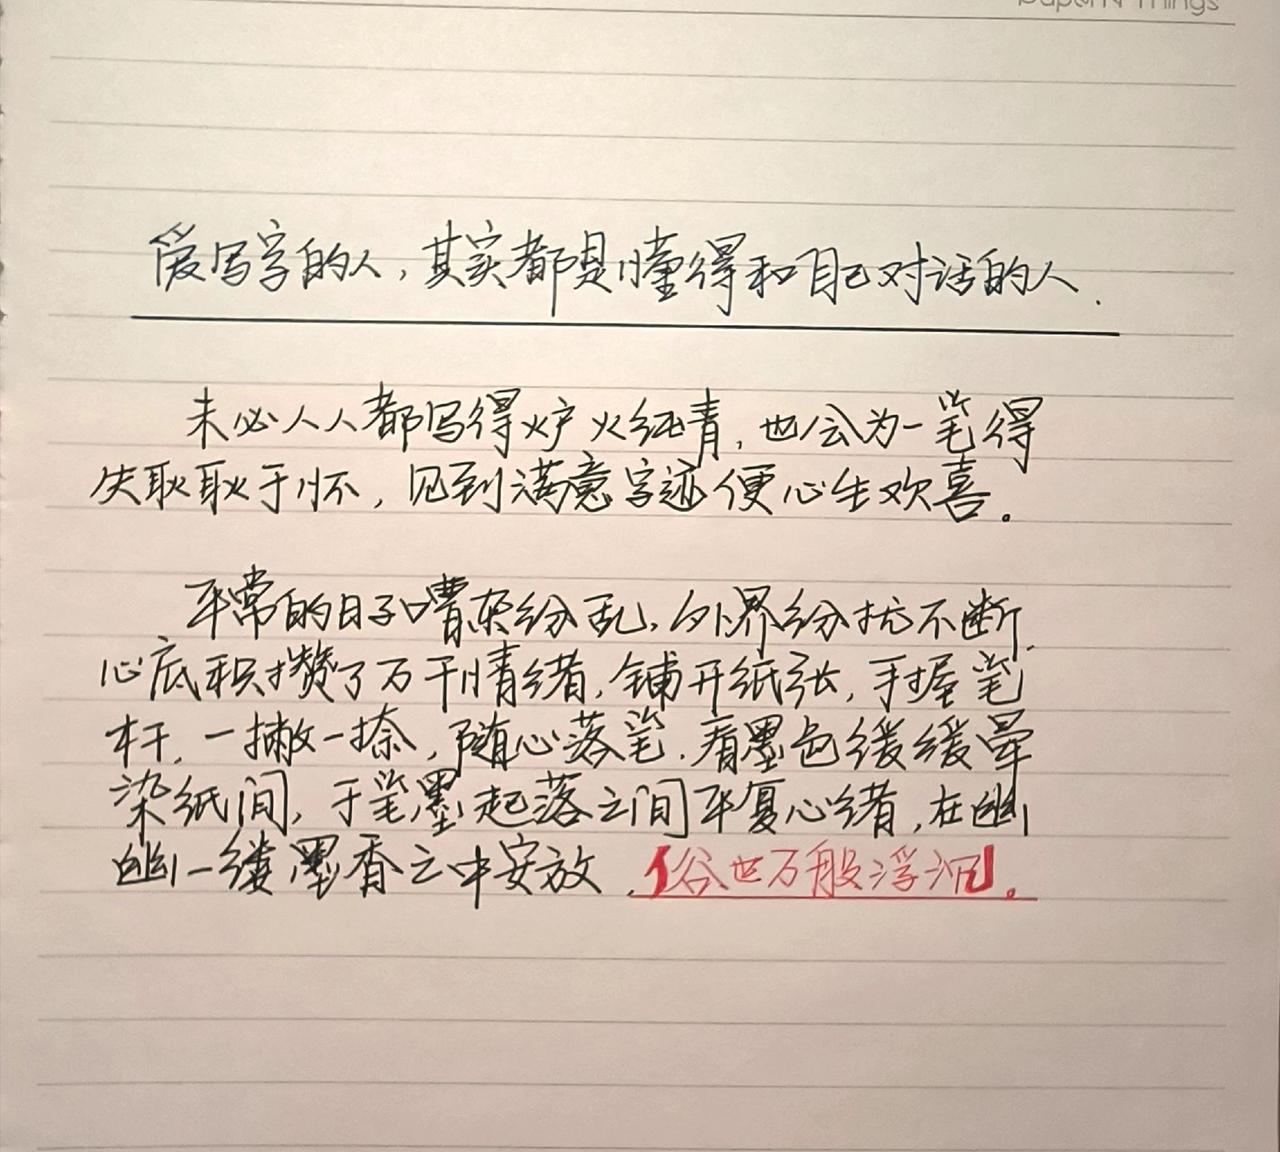 爱写字的人,其实都是懂得和自己对话的人.
未必人人都写得炉火纯青,也会为一笔得
失耿耿于怀,见到满意字迹便心生欢喜。
平常的日子嘈杂纷乱,外界纷扰不断,
心底积攒了万千情绪,铺开纸张,手握笔
杆,一撇一捺,随心落笔.看墨色缓缓晕
染纸间,于笔墨起落之间平复心绪,在幽
幽一缕墨香之中安放.【俗世万般浮沉】。